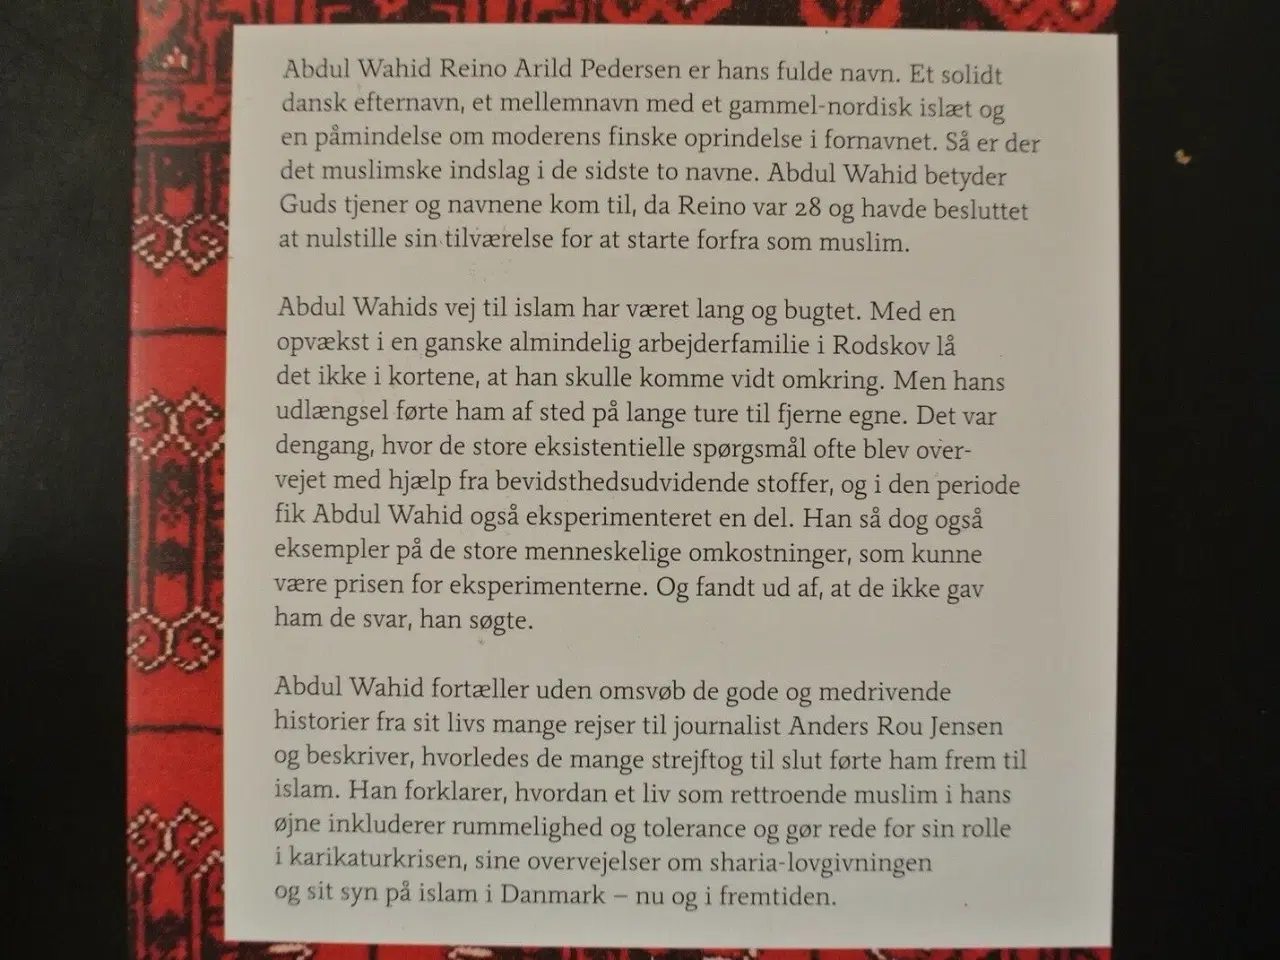 Abdul Wahid Reino Arild Pedersen er hans fulde navn. Et solidt
dansk efternavn, et mellemnavn med et gammel-nordisk islæt og
en påmindelse om moderens finske oprindelse i fornavnet. Så er der
det muslimske indslag i de sidste to navne. Abdul Wahid betyder
Guds tjener og navnene kom til, da Reino var 28 og havde besluttet
at nulstille sin tilværelse for at starte forfra som muslim.
Abdul Wahids vej til islam har været lang og bugtet. Med en
opvækst i en ganske almindelig arbejderfamilie i Rodskov lå
det ikke i kortene, at han skulle komme vidt omkring. Men hans
udlængsel førte ham af sted på lange ture til fjerne egne. Det var
dengang, hvor de store eksistentielle spørgsmål ofte blev over-
vejet med hjælp fra bevidsthedsudvidende stoffer, og i den periode
fik Abdul Wahid også eksperimenteret en del. Han så dog også
eksempler på de store menneskelige omkostninger, som kunne
være prisen for eksperimenterne. Og fandt ud af, at de ikke gav
ham de svar, han søgte.
Abdul Wahid fortæller uden omsvøb de gode og medrivende
historier fra sit livs mange rejser til journalist Anders Rou Jensen
og beskriver, hvorledes de mange strejftog til slut førte ham frem til
islam. Han forklarer, hvordan et liv som rettroende muslim i hans
øjne inkluderer rummelighed og tolerance og gør rede for sin rolle
i karikaturkrisen, sine overvejelser om sharia-lovgivningen
og sit syn på islam i Danmark – nu og i fremtiden.